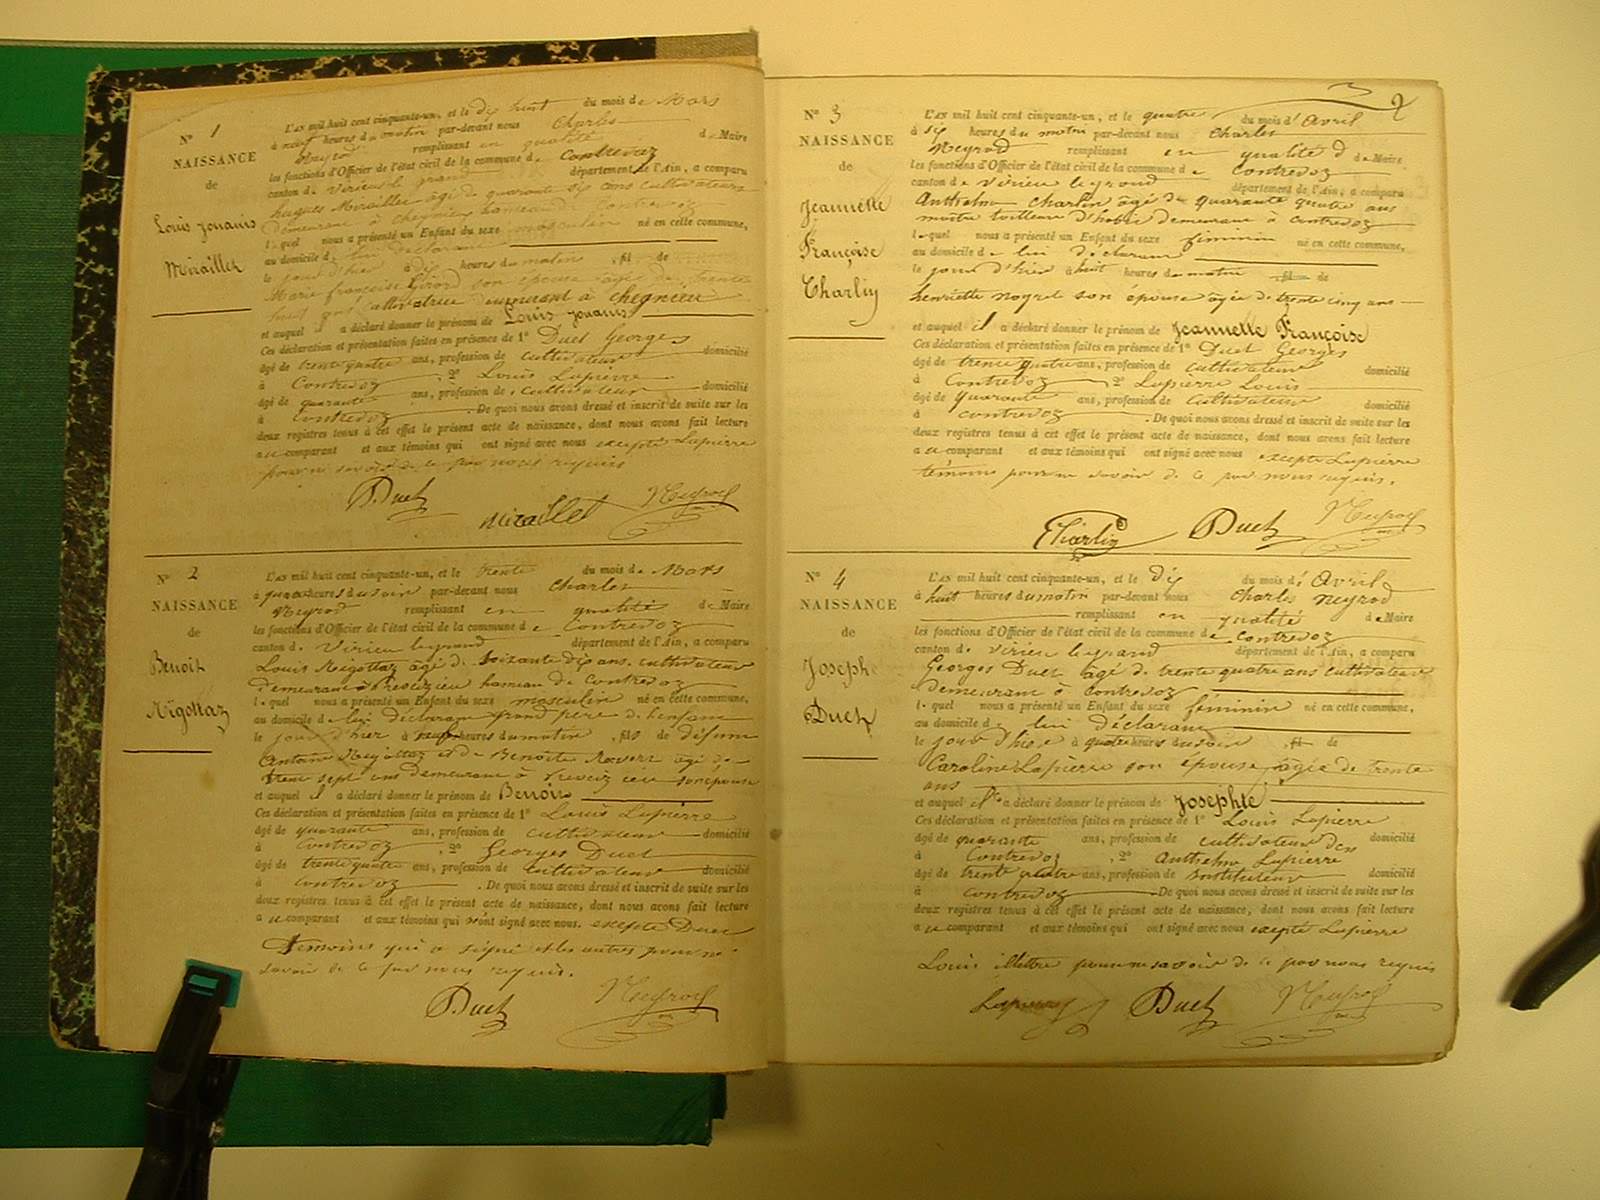 Nº 1
NAISSANCE
de
Louis jouanis
Miraillet
L'AN mil huit cent cinquante-un, et le dix huit du mois de Mars
à neuf heures du matin par-devant nous Charles
Neyrod remplissant en qualité de Maire
les fonctions d'Officier de l'état civil de la commune de Contrevoz
canton de Virieu le grand département de l'Ain, a comparu
hugues Miraillet âgé de quarante six ans cultivateur
demeurant à chegnieu hameau de Contrevoz
lequel nous a présenté un Enfant du sexe masculin né en cette commune,
au domicile de lui déclarant
le jour d'hier à dix heures du matin, fil de
Marie francoise Girod son épouse âgée de trente
huit ans cultivatrice demeurant à chegnieu
et auquel il a déclaré donner le prénom de Louis jouanis
Ces déclaration et présentation faites en présence de 1º Duet Georges
âgé de trente quatre ans, profession de cultivateur domicilié
à Contrevoz, 2º Louis Lapierre
âgé de quarante ans, profession de cultivateur domicilié
à Contrevoz. De quoi nous avons dressé et inscrit de suite sur les
deux registres tenus à cet effet le présent acte de naissance, dont nous avons fait lecture
au comparant et aux témoins qui ont signé avec nous excepté Lapierre
pour ne savoir de ce par nous requis
Duet
Miraillet
Neyrod
Nº 2
NAISSANCE
de
Benoit
Rigottaz
L'AN mil huit cent cinquante-un, et le trente du mois de Mars
à quatre heures du soir par-devant nous Charles
Neyrod remplissant en qualité de Maire
les fonctions d'Officier de l'état civil de la commune de Contrevoz
canton de Virieu legrand département de l'Ain, a comparu
Louis Rigottaz âgé de Soixante dix ans cultivateur
demeurant à hameau de Contrevoz
lequel nous a présenté un Enfant du sexe masculin né en cette commune,
au domicile de lui déclarant grand père de l'enfant
le jour d'hier à neuf heures du matin, fils de défunt
Antoine Rigottaz et de Benoite âgée de
trente sept ans demeurant à son épouse
et auquel il a déclaré donner le prénom de Benoit
Ces déclaration et présentation faites en présence de 1º Louis Lapierre
âgé de quarante ans, profession de cultivateur domicilié
à Contrevoz, 2º Georges Duet
âgé de trente quatre ans, profession de cultivateur domicilié
à Contrevoz. De quoi nous avons dressé et inscrit de suite sur les
deux registres tenus à cet effet le présent acte de naissance, dont nous avons fait lecture
au comparant et aux témoins qui n'ont signé avec nous. excepté Duet
Temoins qui a signé et les autres pour ne
savoir de ce par nous requis.
Duet
Neyrod
2
Nº 3
NAISSANCE
de
Jeannette
Françoise
Charlin
L'AN mil huit cent cinquante-un, et le quatre du mois d'Avril
à six heures du matin par-devant nous Charles
Neyrod remplissant en qualité d de Maire
les fonctions d'Officier de l'état civil de la commune de Contrevoz
canton de Virieu legrand département de l'Ain, a comparu
Anthelme Charlin âgé de quarante quatre ans
maitre tailleur d'habit demeurant à Contrevoz
lequel nous a présenté un Enfant du sexe féminin né en cette commune,
au domicile de lui déclarant
le jour d'hier à huit heures du matin fil de
henriette son épouse âgée de trente cinq ans
et auquel il a déclaré donner le prénom de Jeannette Françoise
Ces déclaration et présentation faites en présence de 1º Duet Georges
âgé de trente quatre ans, profession de cultivateur domicilié
à Contrevoz, 2º Lapierre Louis
âgé de quarante ans, profession de cultivateur domicilié
à Contrevoz. De quoi nous avons dressé et inscrit de suite sur les
deux registres tenus à cet effet le présent acte de naissance, dont nous avons fait lecture
au comparant et aux témoins qui ont signé avec nous excepté Lapierre
témoins pour ne savoir de ce par nous requis.
Charlin
Duet
Neyrod
Nº 4
NAISSANCE
de
Josephe
Duet
L'AN mil huit cent cinquante-un, et le dix du mois d'Avril
à huit heures du matin par-devant nous Charles Neyrod
remplissant en qualité de Maire
les fonctions d'Officier de l'état civil de la commune de Contrevoz
canton de Virieu legrand département de l'Ain, a comparu
Georges Duet âgé de trente quatre ans cultivateur
demeurant à Contrevoz
lequel nous a présenté un Enfant du sexe féminin né en cette commune,
au domicile de lui déclarant
le jour d'hier à quatre heures du soir, fil de
Caroline Lapierre son épouse âgée de trente
ans
et auquel il a déclaré donner le prénom de Josephte
Ces déclaration et présentation faites en présence de 1º Louis Lapierre
âgé de quarante ans, profession de cultivateur domicilié
à Contrevoz, 2º Anthelme Lapierre
âgé de trente quatre ans, profession de instituteur domicilié
à Contrevoz. De quoi nous avons dressé et inscrit de suite sur les
deux registres tenus à cet effet le présent acte de naissance, dont nous avons fait lecture
au comparant et aux témoins qui ont signé avec nous excepté Lapierre
Louis illettré pour ne savoir de ce par nous requis
Lapierre
Duet
Neyrod